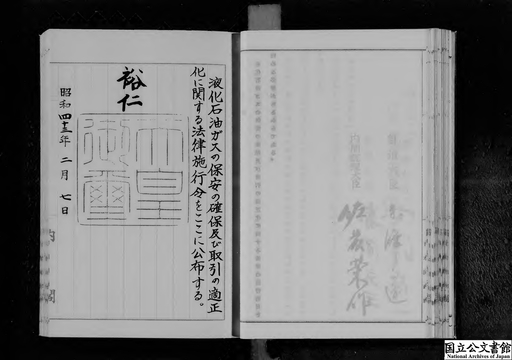 液化石油ガスの保安の確保及び取引の適正
化に関する法律施行令をここに公布する。
裕仁
天皇
御璽
昭和四十三年二月七日
内閣
佐藤栄作
国立公文書館
National Archives of Japan